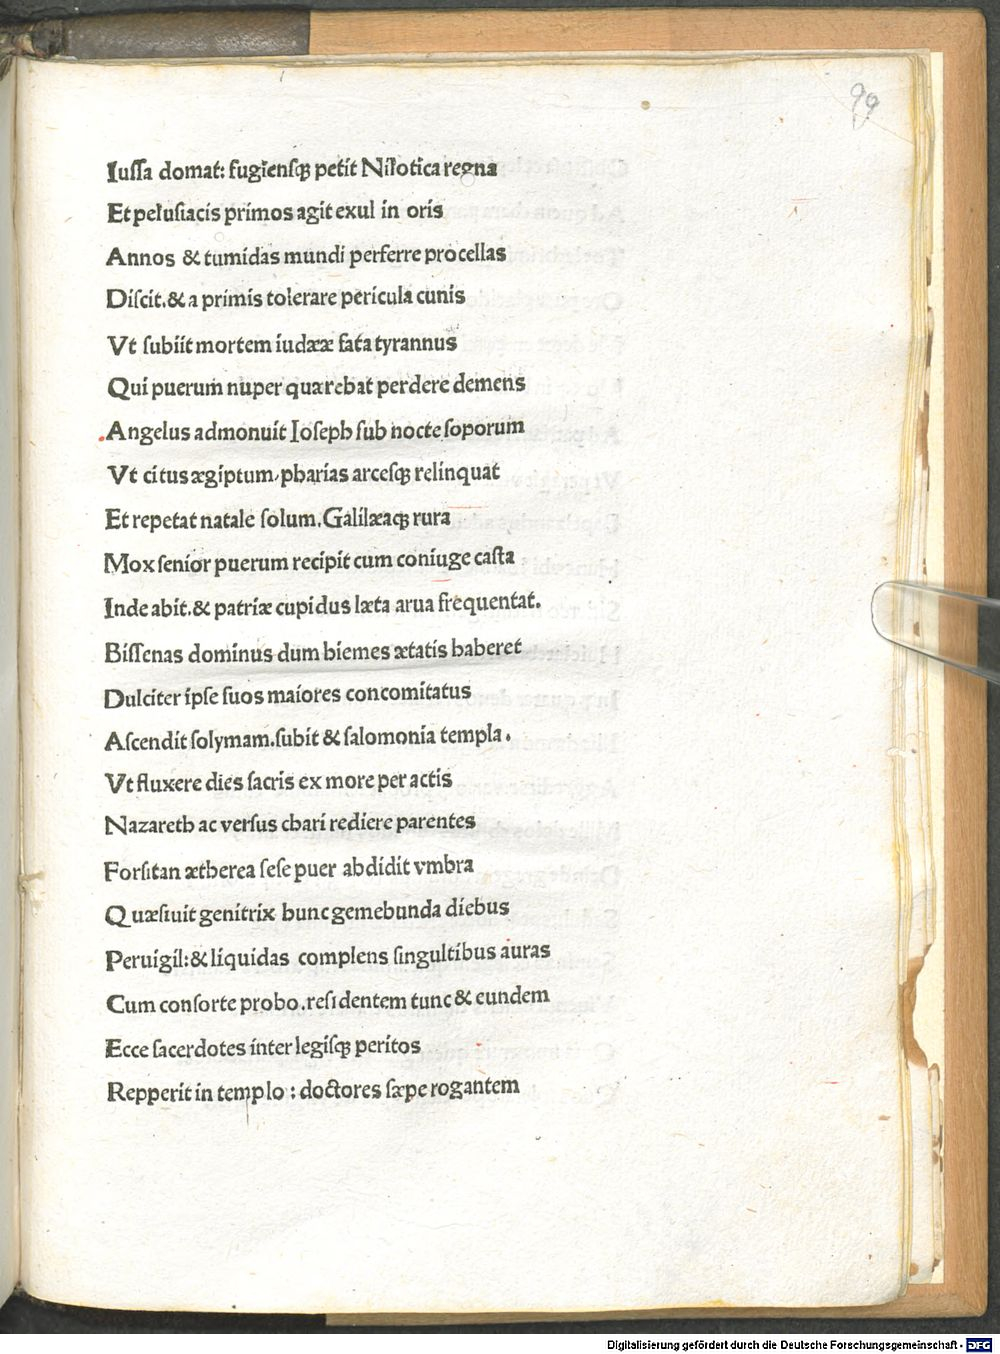 99
Iuſſa domat: fugiēnſqꝫ petit Nilotica regna
Et peluſiacis primos agit exul in oris
Annos & tumidas mundi perferre procellas
Diſcit.& a primis tolerare pericula cunis
Vt ſubiit mortem iudææ fata tyrannus
Qui puerum nuper quærebat perdere demens
Angelus admonuit Ioſeph ſub nocte ſoporum
Vt citus ægiptum, pharias arceſqꝫ relinquat
Et repetat natale ſolum. Galilæaqꝫ rura
Mox ſenior puerum recipit cum coniuge caſta
Inde abit.& patriæ cupidus læta arua frequentat.
Biſſenas dominus dum hiemes ætatis haberet
Dulciter ipſe ſuos maiores concomitatus
Aſcendit ſolymam.ſubit & ſalomonia templa.
Vt fluxere dies ſacris ex more per actis
Nazareth ac verſus chari rediere parentes
Forſitan ætherea ſeſe puer abdidit vmbra
Quæſiuit genitrix hunc gemebunda diebus
Peruigil:& liquidas complens ſingultibus auras
Cum conſorte probo.reſidentem tunc & eundem
Ecce ſacerdotes inter legiſqꝫ peritos
Repperit in templo : doctores ſæpe rogantem
Digitalisierung gefördert durch die Deutsche Forschungsgemeinschaft - DFG